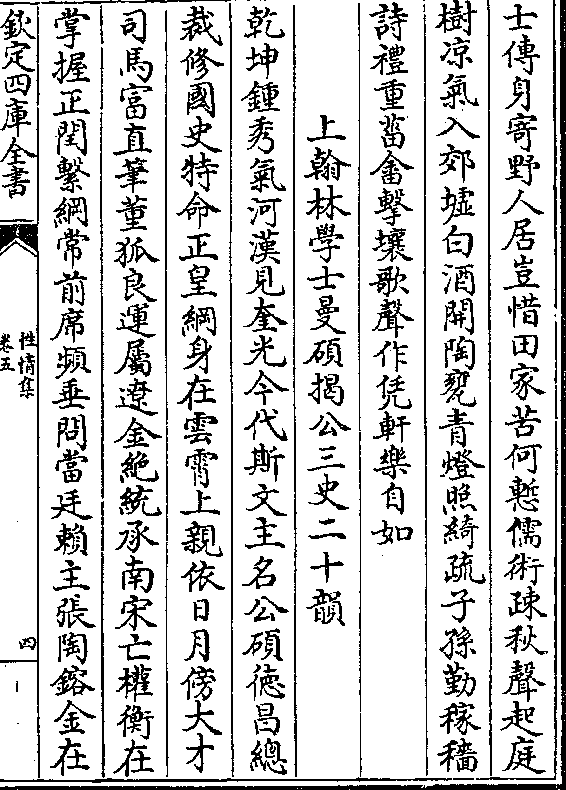 士傳身寄野人居豈惜田家苦何慙儒術疎秋聲起庭
樹凉氣入郊墟白酒開陶甕青燈照綺疏子孫勤稼穡
詩禮重菑畬擊壤歌聲作凭軒樂自如
上翰林學士曼碩揭公三史二十韻
乾坤鍾秀氣河漢見奎光今代斯文主名公碩德昌總
裁修國史特命正皇綱身在雲霄上親依日月傍大才
司馬富直筆董狐良運屬遼金絶統承南宋亡權衡在
掌握正閏繫綱常前席頻垂問當廷賴主張陶鎔金在
欽定四庫全書
性情集
卷五
四